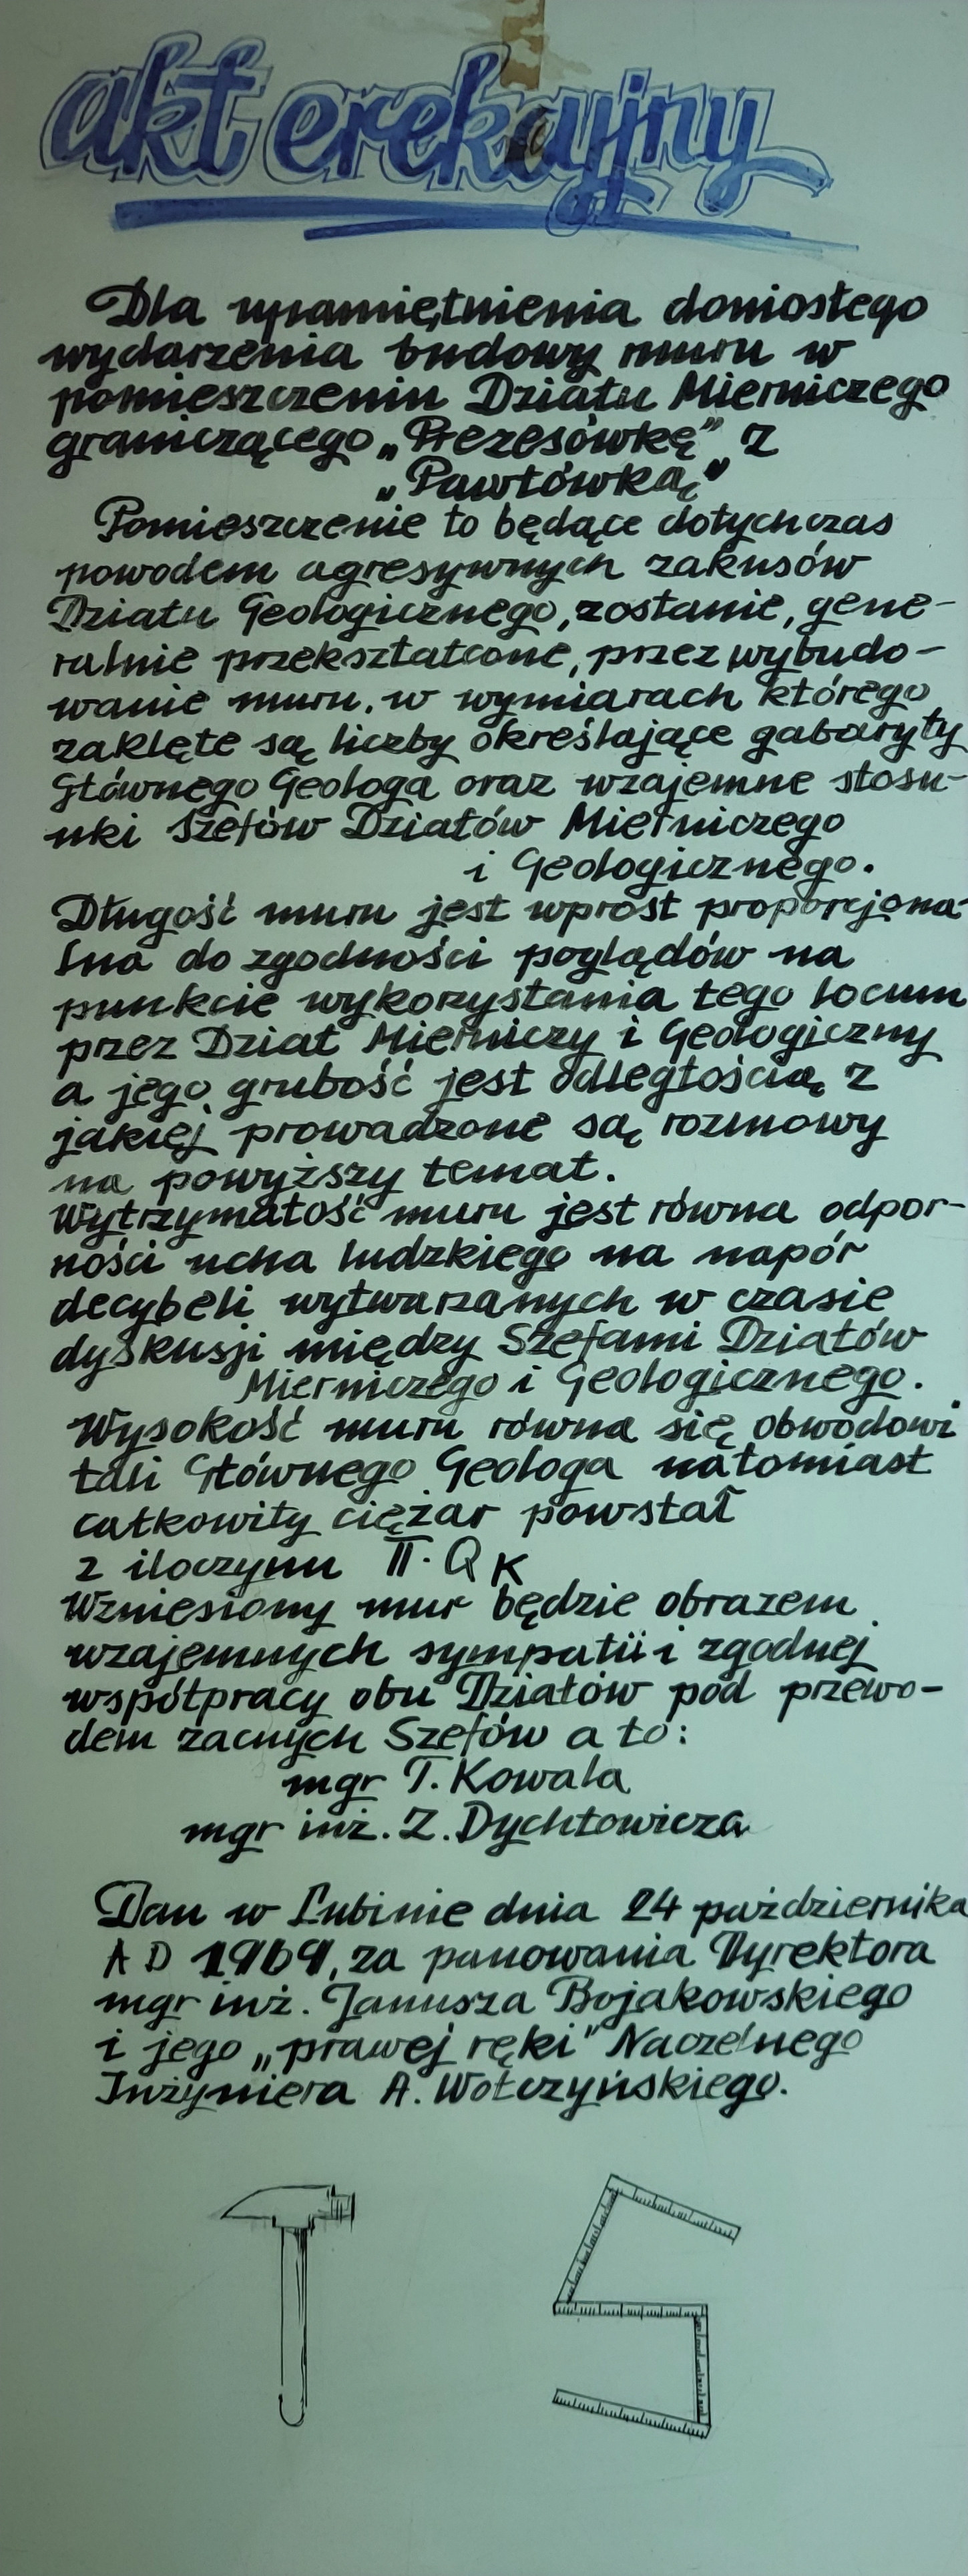 akt erekcyjny
Dla upamiętnienia doniosłego
wydarzenia budowy muru w
pomieszczeniu Działu Mierniczego
graniczącego „Prezesówkę” z
„Pawłówką”
Pomieszczenie to będące dotychczas
powodem agresywnych zakusów
Działu Geologicznego, zostanie, gene-
ralnie przekształcone, przez wybudo-
wanie muru, w wymiarach którego
zaklęte są liczby określające gabaryty
Głównego Geologa oraz wzajemne stosu-
nki Szefów Działów Mierniczego
i Geologicznego.
Długość muru jest wprost proporcjona-
lna do zgodności poglądów na
punkcie wykorzystania tego locum
przez Dział Mierniczy i Geologiczny
a jego grubość jest odległością z
jakiej prowadzone są rozmowy
na powyższy temat.
Wytrzymałość muru jest równa odpor-
ności ucha ludzkiego na napór
decybeli wytwarzanych w czasie
dyskusji między Szefami Działów
Mierniczego i Geologicznego.
Wysokość muru równa się obwodowi
tali Głównego Geologa natomiast
całkowity ciężar powstał
z iloczynu π · Q K
Wzniesiony mur będzie obrazem
wzajemnych sympatii i zgodnej
współpracy obu Działów pod przewo-
dem zacnych Szefów a to:
mgr T. Kowala
mgr inż. Z. Dychtowicza
Dan w Lubinie dnia 24 października
A D 1969, za panowania Dyrektora
mgr inż. Janusza Bojakowskiego
i jego „prawej ręki” Naczelnego
Inżyniera A. Wołczyńskiego.